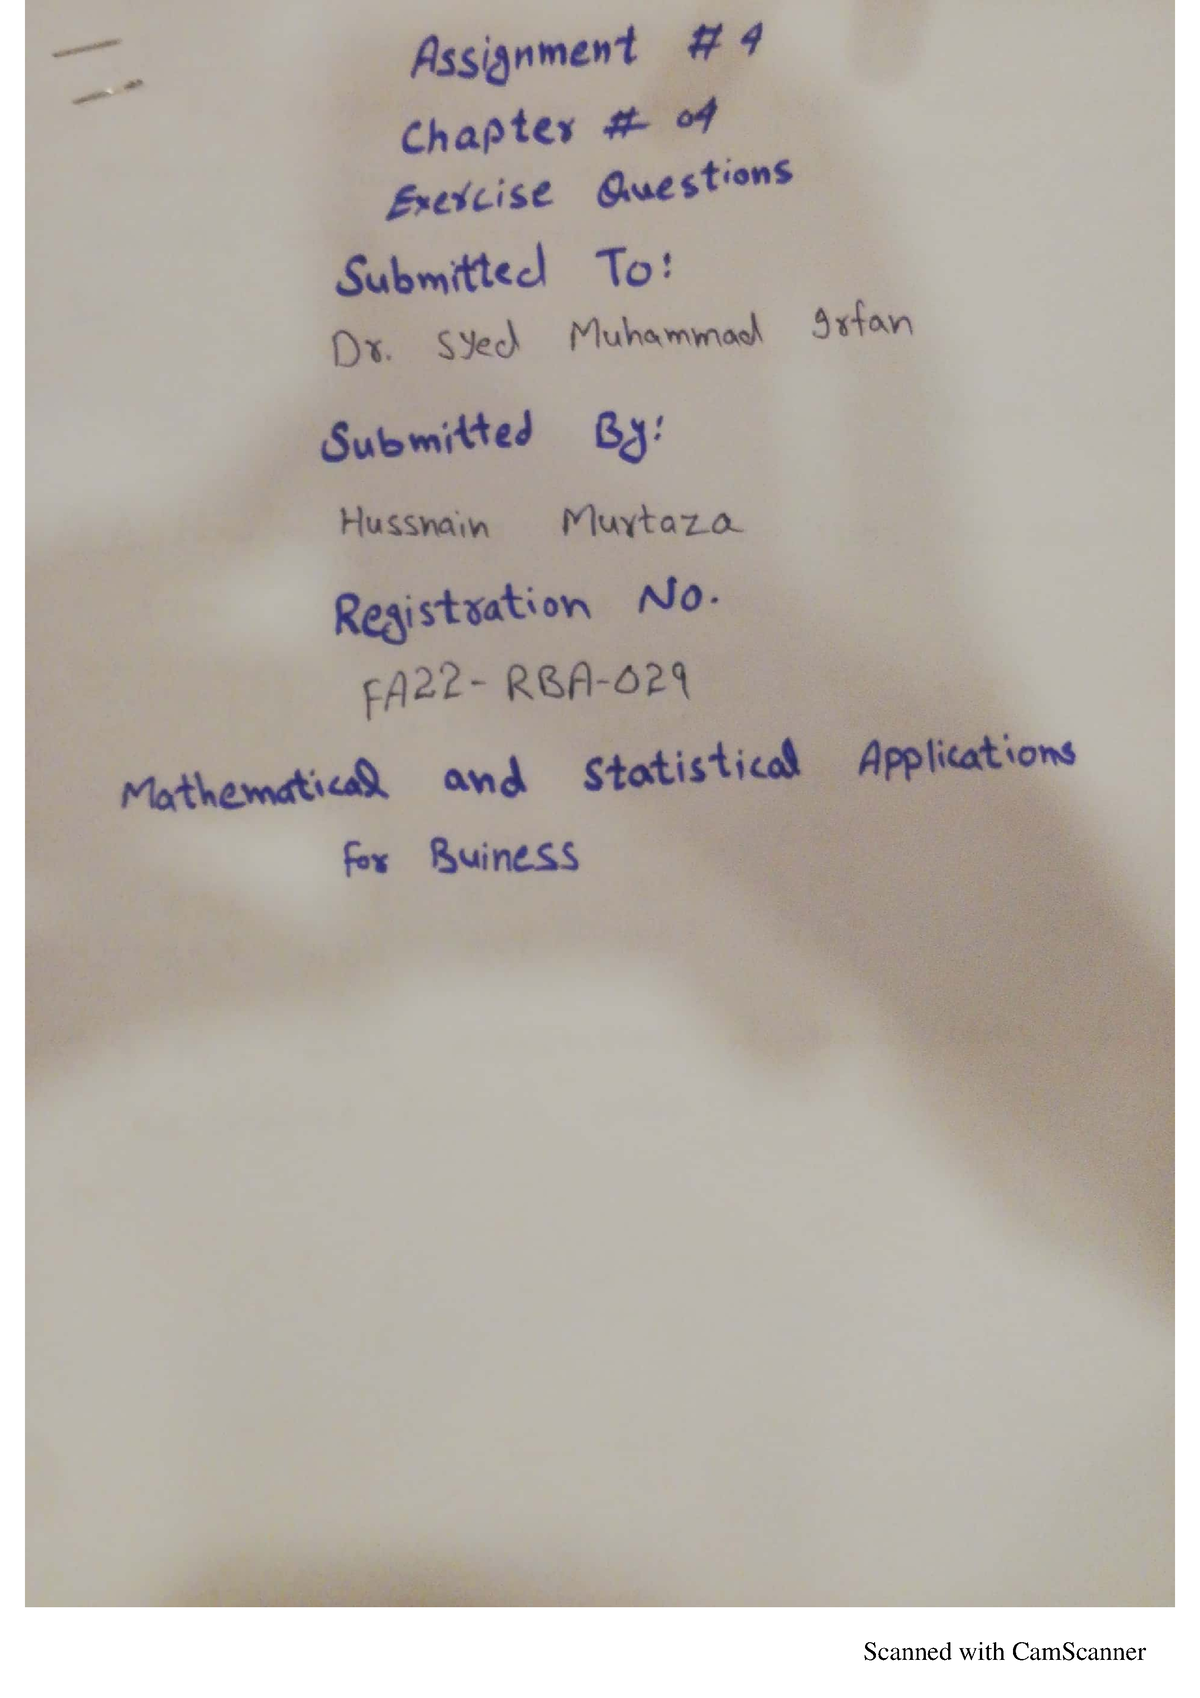 Assignment # 4
Chapter # 04
Exercise Questions
Submitted To:
Dr. Syed Muhammad Irfan
Submitted By:
Hussnain Murtaza
Registration No.
FA22-RBA-029
Mathematical and Statistical Applications
for Buiness
Scanned with CamScanner